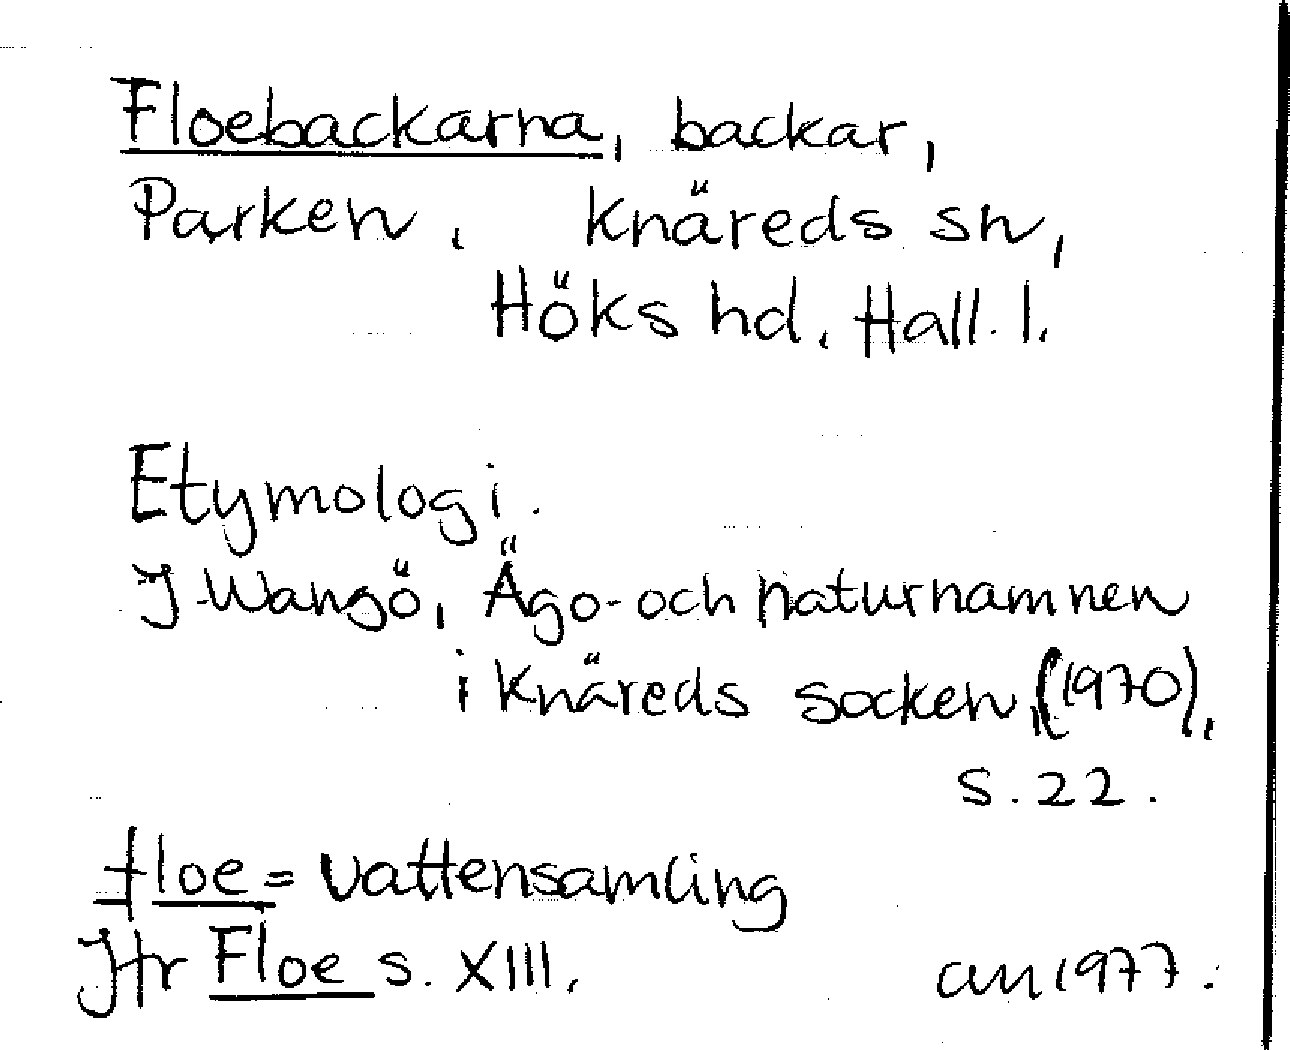 Floebackarna, backar,
Parken, Knäreds sn,
Höks hd, Hall. l.
Etymologi.
J Wangö, Ägo- och naturnamnen
i Knäreds socken, (1970),
s. 22.
floe = vattensamling
Jfr Floe s. XIII.
1977.